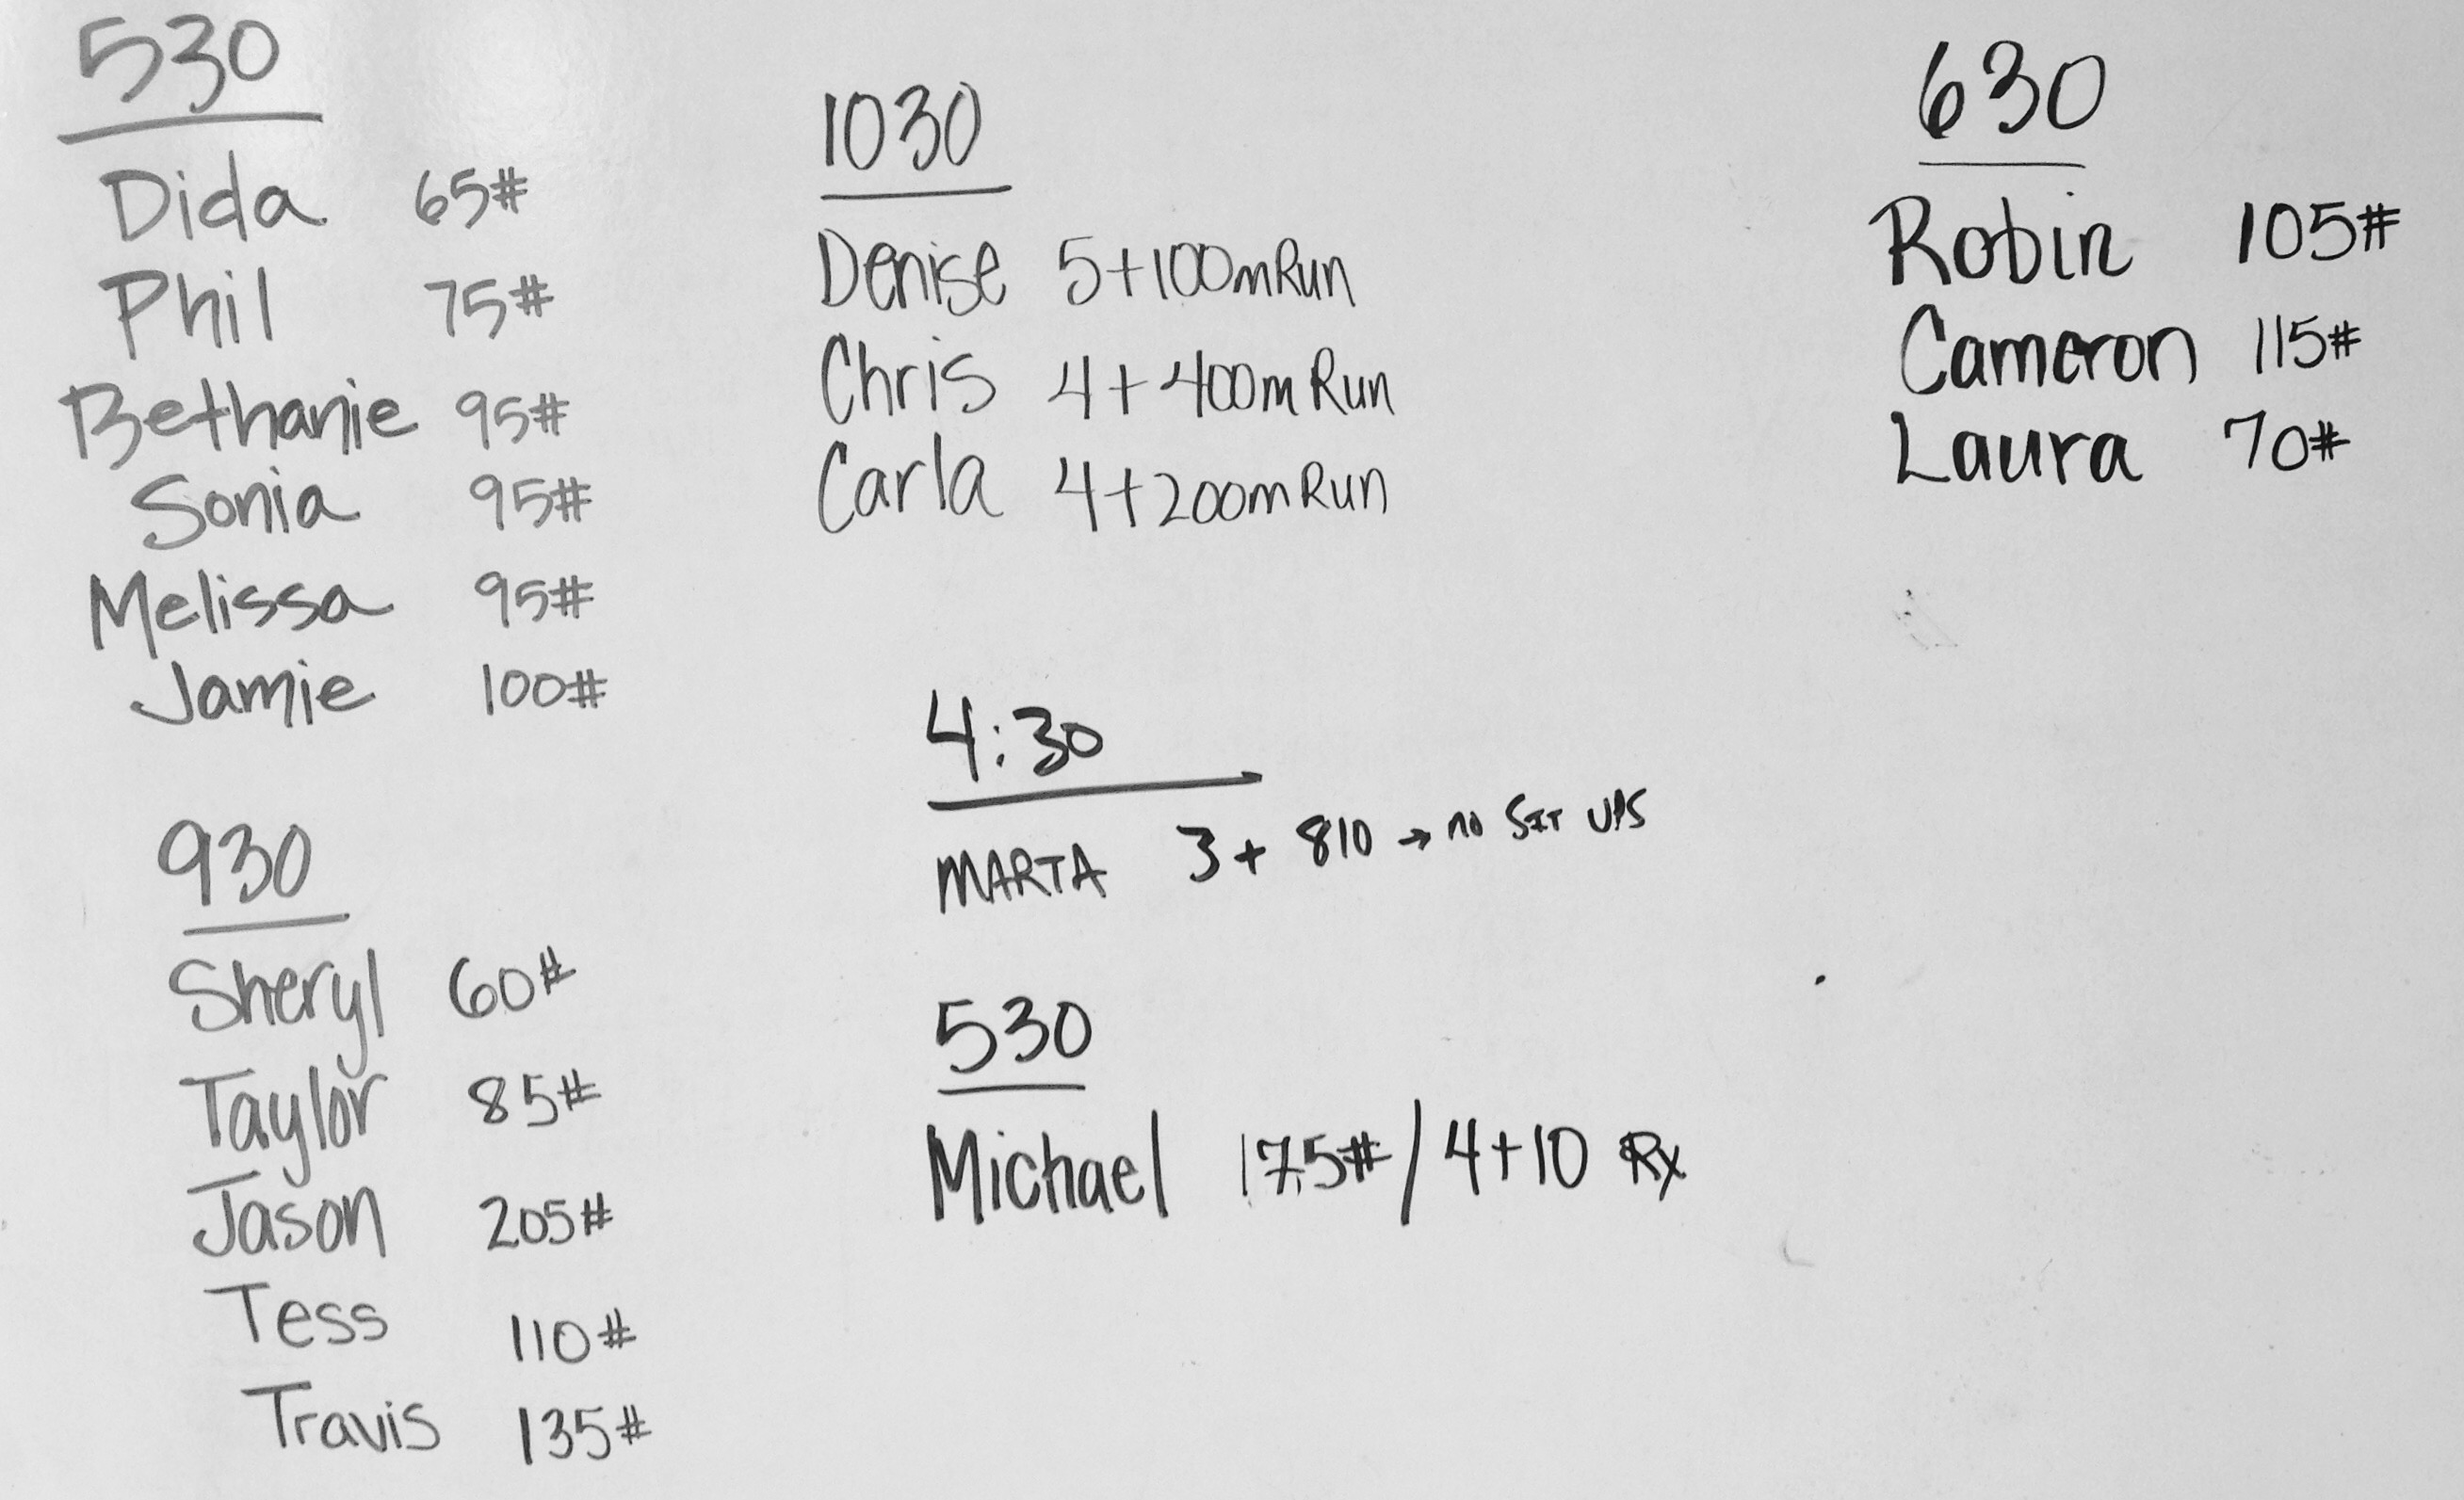 530
Dida 65#
Phil 75#
Bethanie 95#
Sonia 95#
Melissa 95#
Jamie 100#
930
Sheryl 60#
Taylor 85#
Jason 205#
Tess 110#
Travis 135#
1030
Denise 5+100m Run
Chris 4+400m Run
Carla 4+200m Run
4:30
MARTA 3+ 810 → no SIT UPS
530
Michael 175# / 4+10 Rx
630
Robin 105#
Cameron 115#
Laura 70#